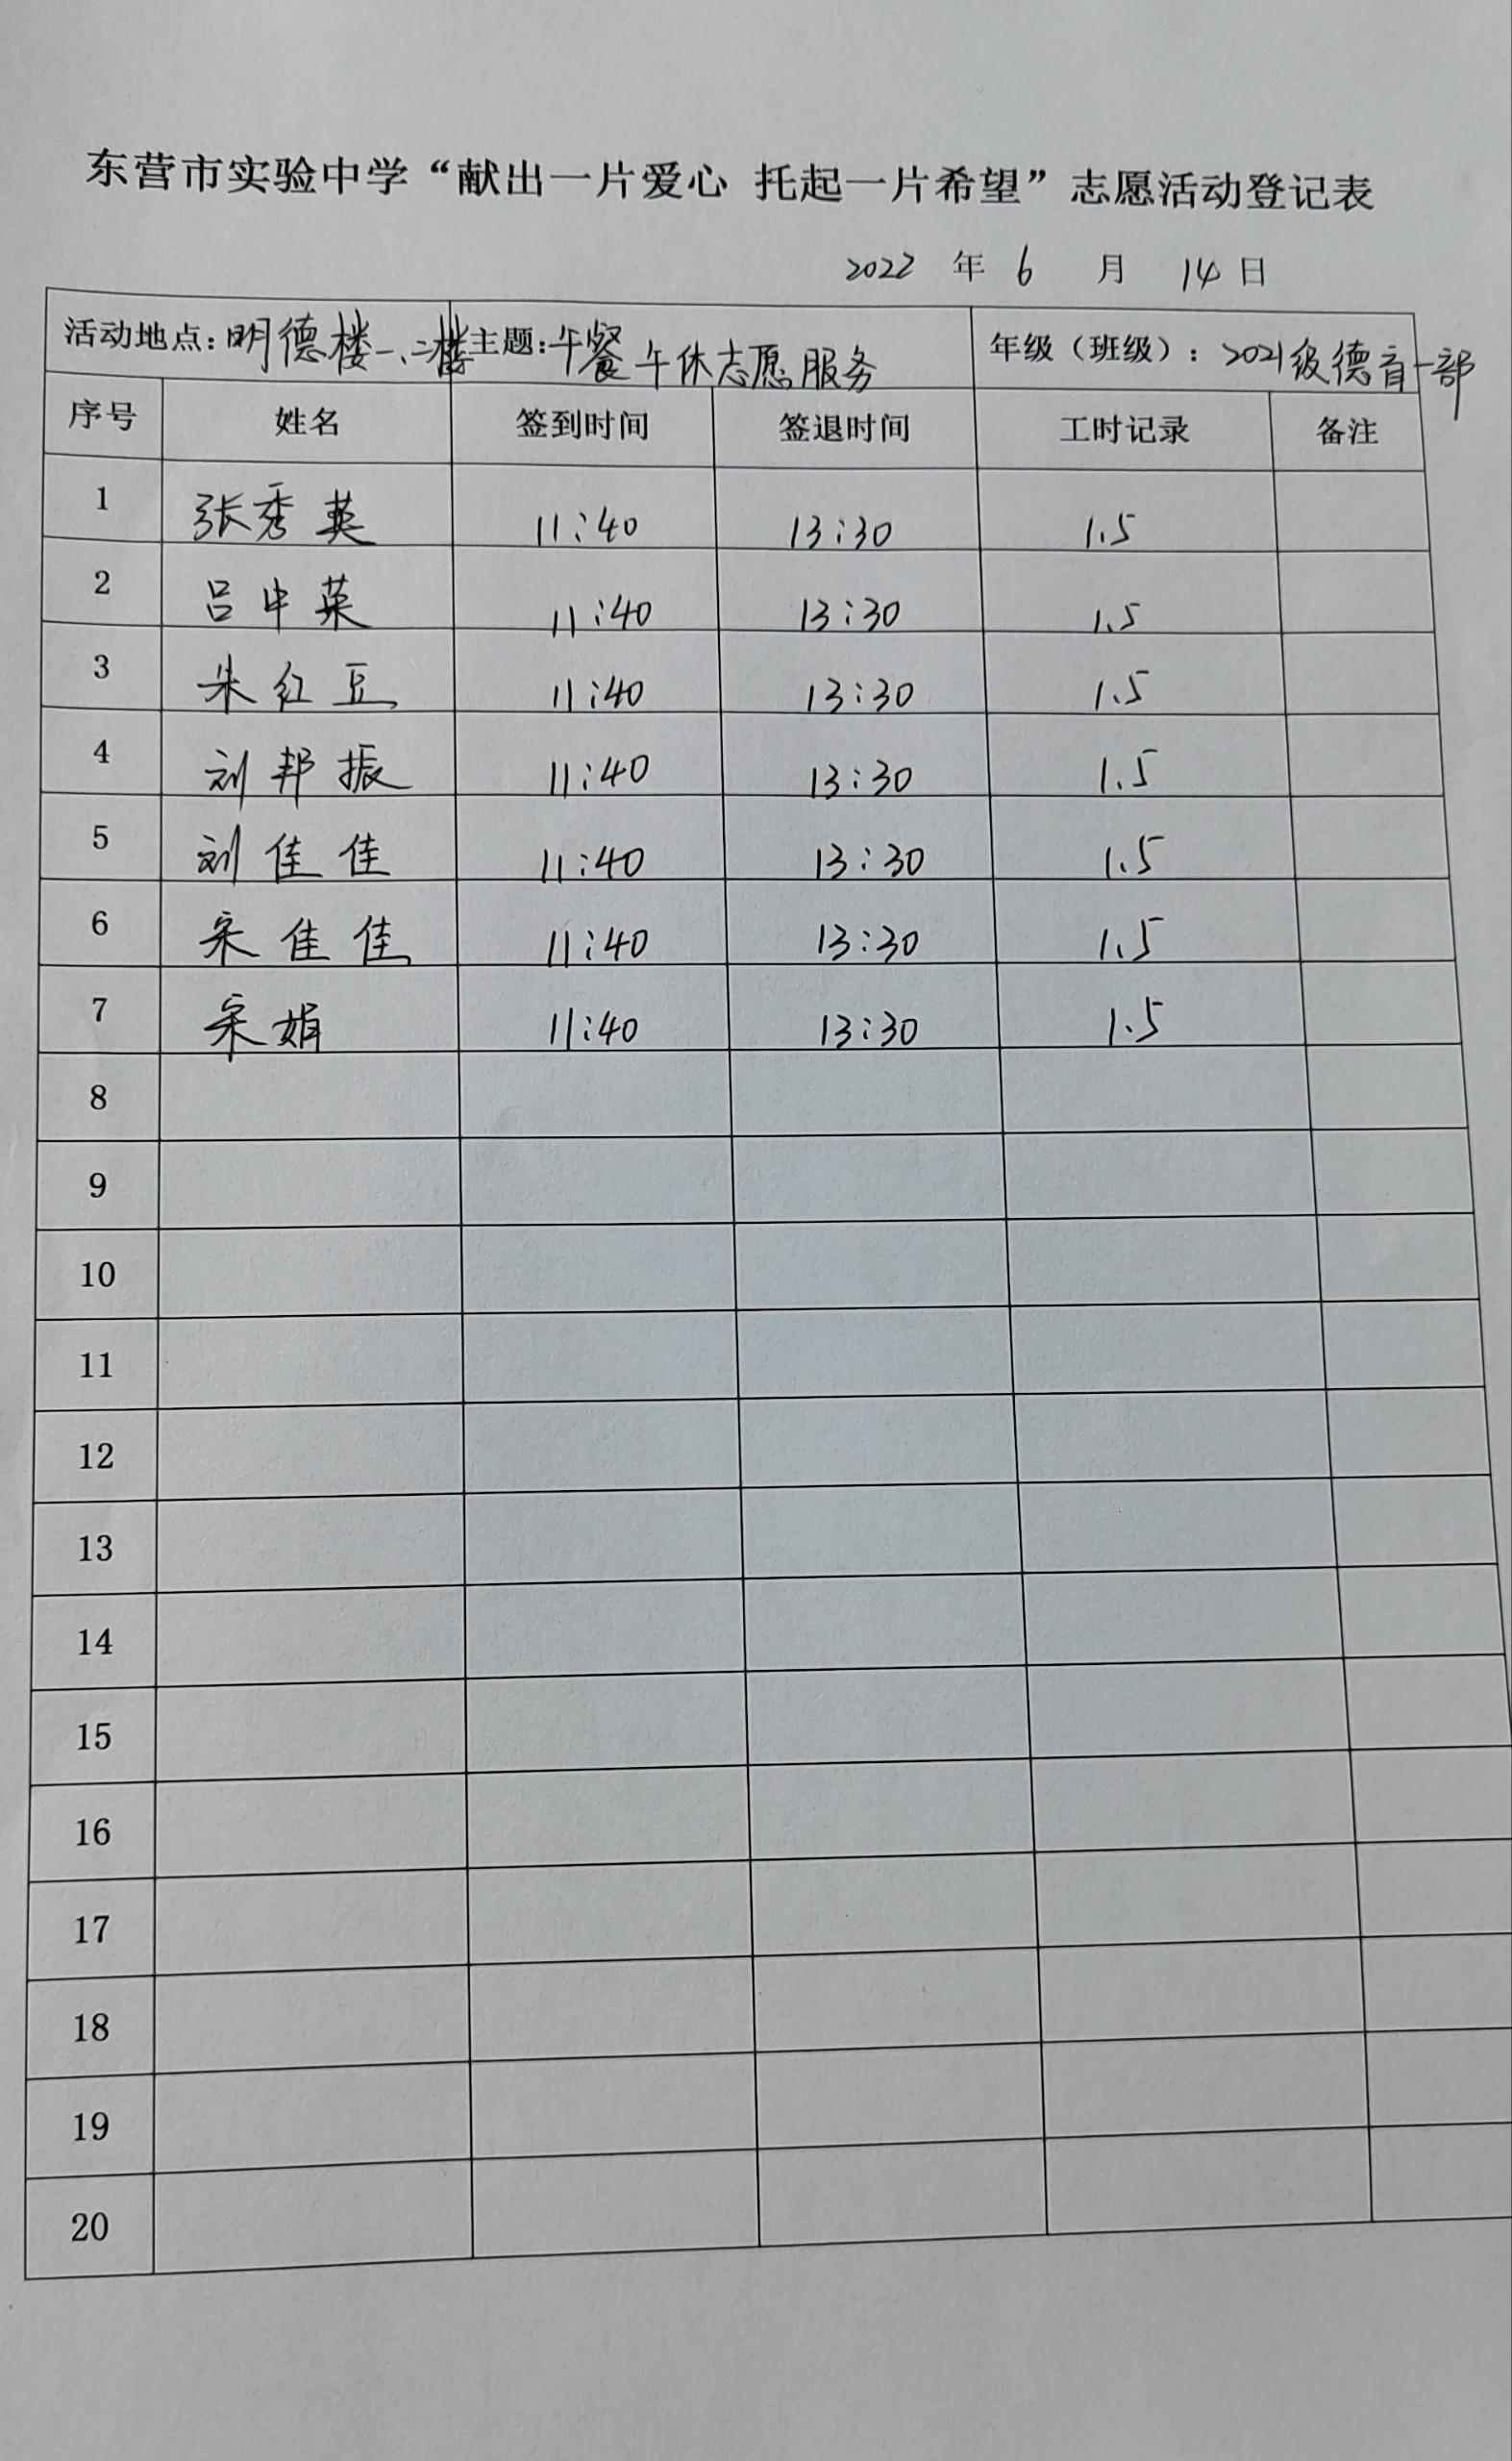 东营市实验中学“献出一片爱心 托起一片希望”志愿活动登记表
2022 年 6 月 14 日
活动地点：明德楼一、二楼 主题：午餐午休志愿服务 年级（班级）：2021级德育一部
序号 姓名 签到时间 签退时间 工时记录 备注
1 张秀英 11:40 13:30 1.5
2 吕中英 11:40 13:30 1.5
3 朱红豆 11:40 13:30 1.5
4 刘邦振 11:40 13:30 1.5
5 刘佳佳 11:40 13:30 1.5
6 宋佳佳 11:40 13:30 1.5
7 宋娟 11:40 13:30 1.5
8
9
10
11
12
13
14
15
16
17
18
19
20